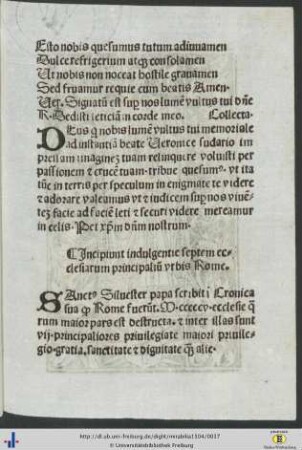 Esto nobis quesumus tutum adiuuamen
Dulce refrigerium atq; consolamen
Ut nobis non noceat hostile grauamen
Sed fruamur requie cum beatis Amen·
Ver. Signatū est suꝑ nos lumē vultus tui dn̄e
R· Dedisti leticiā in corde meo. Collecta·
DEus q̄ nobis lumē vultus tui memoriale
ad instantiā beate Veronice sudario im
pressam imaginez tuam relinquere voluisti per
passionem ⁊ crucē tuam· tribue quesumꝰ· vt ita
nūc in terris per speculum in enigmate te videre
⁊ adorare valeamus vt te iudicem suꝑ nos viuē
tez facie ad faciē leti ⁊ securi videre mereamur
in celis· Per xp̄m dn̄m nostrum·
⸿Incipiunt indulgentie septem ec
clesiarum principaliū vrbis Rome.
SAnctꝰ Siluester papa scribit ī Cronica
sua ꝙ Rome fuerūt· M·ccccv·ecclesie q̄
rum maior pars est destructa· ⁊ inter illas sunt
vij·principaliores priuilegiate maiori priuile
gio·gratia· sanctitate ⁊ dignitate q̄ȝ alie·
http://dl.ub.uni-freiburg.de/diglit/mirabilia1504/0037
© Universitätsbibliothek Freiburg